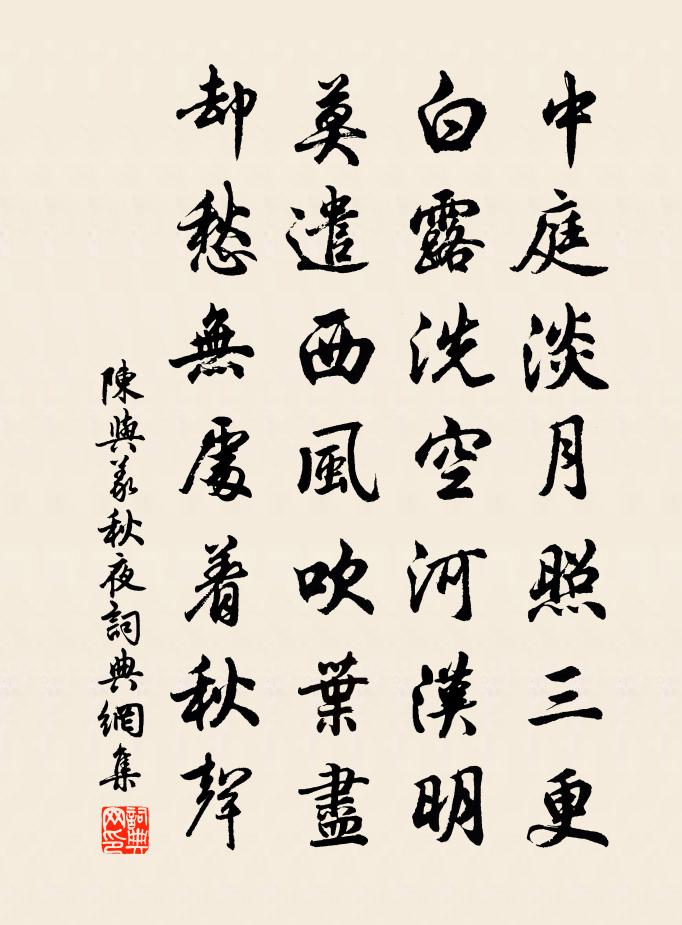 中庭淡月照三更
白露洗空河漢明
莫遣西風吹葉盡
却愁無處着秋聲
陳與義秋夜詞典網集
詞典網印